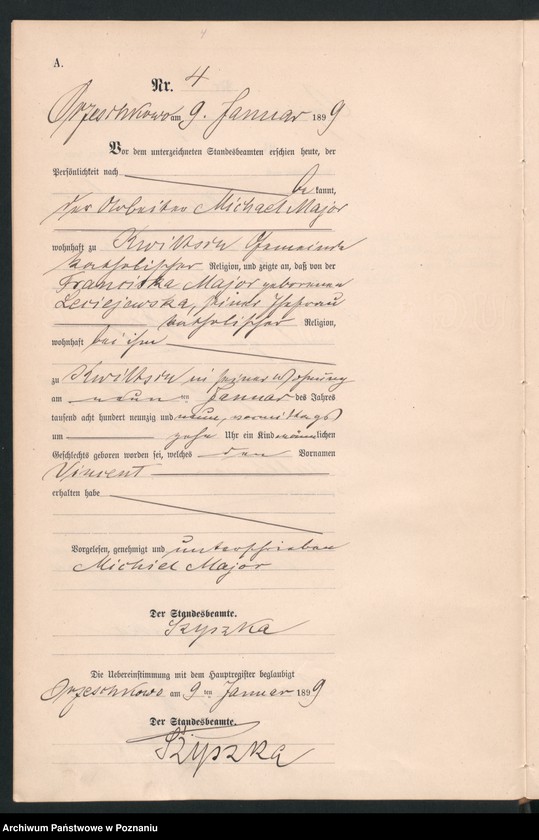 4
A.
Nr. 4
Orzeschkowo am 9. Januar 1899
Vor dem unterzeichneten Standesbeamten erschien heute, der
Persönlichkeit nach
be kannt,
der Arbeiter Michael Major
wohnhaft zu Kwiltsch Gemeinde
katholischer Religion, und zeigte an, daß von der
Franciska Major geborenen
Leciejewska, seiner Ehefrau
katholischer Religion,
wohnhaft bei ihm
zu Kwiltsch in seiner Wohnung
am neun ten Januar des Jahres
tausend acht hundert neunzig und neun, vormittags
um zehn Uhr ein Kind männlichen
Geschlechts geboren worden sei, welches den Vornamen
Vincent
erhalten habe
Vorgelesen, genehmigt und unterschrieben
Michiel Major
Der Standesbeamte.
Szyszka
Die Uebereinstimmung mit dem Hauptregister beglaubigt
Orzeschkowo am 9 ten Januar 1899
Der Standesbeamte.
Szyszka
Archiwum Państwowe w Poznaniu